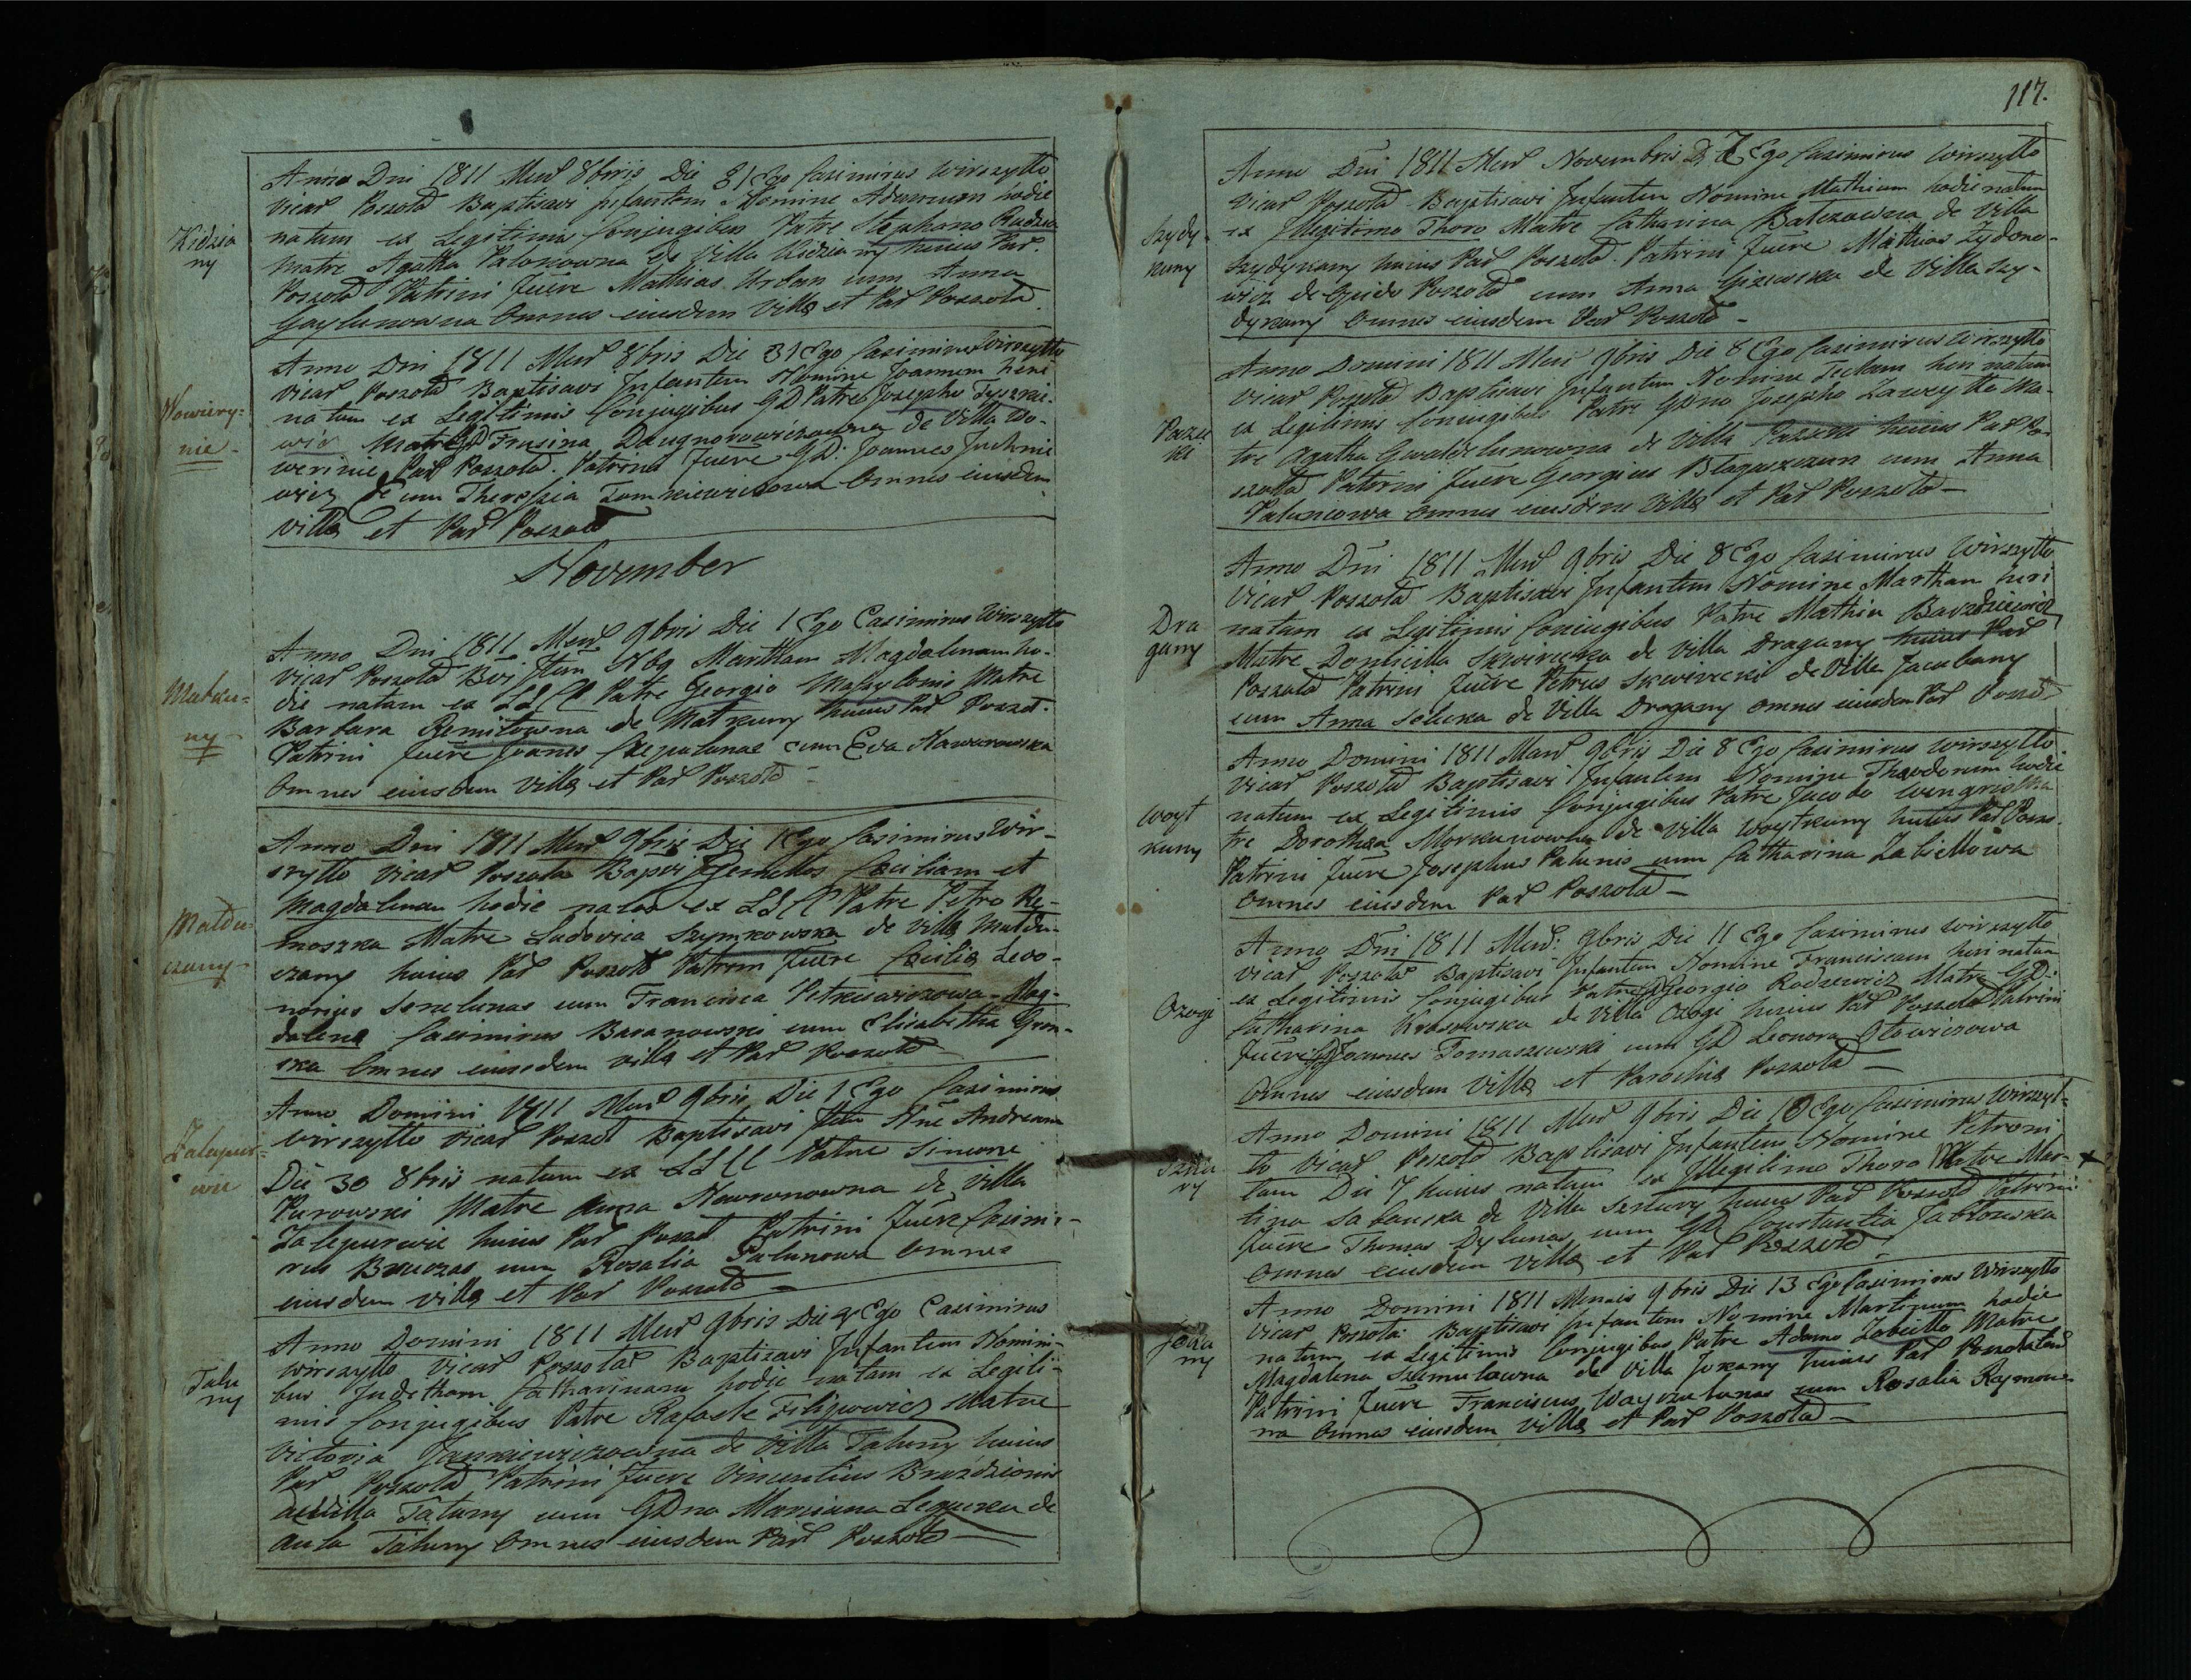 Kidzia
ny
Anno Dni 1811 Mens 8bris Die 31 Ego Casimirus Wirszytto
Vicar Poszoln Baptisavi Infantem Nomine Adamum hodie
natum ex Legitimis Conjugibus Patre Stephano Kudzia
Matre Agatha Palonowna de Villa Kidziany huius Par
Poszoln Patrini fuere Mathias Urban cum Anna
Gaylunowna Omnes eiusdem Villæ et Par Poszoln.
Nowiery=
nie
Anno Dni 1811 Mens 8bris Die 31 Ego Casimirus Wirszytto
Vicar Poszoln Baptisavi Infantem Nomine Joannem heri
natum ex Legitimis Conjugibus GD Patre Josepho Tyszkie-
wicz Matre GD Frusina Daugnorowiczowna de Villa No-
werinie Par Poszoln. Patrini fuere GD: Joannes Juchnie
wicz cum Theressia Tomkiewiczowa Omnes eiusdem
Villæ et Par Poszoln
November
Matku=
ny
Anno Dni 1811 Mens 9bris Die 1 Ego Casimirus Wirszytto
Vicar Poszoln Bvi Iftm Nbq Martham Magdalenam ho-
die natam ex LLCC Patre Georgio Massaytonis Matre
Barbara Remitowna de Matkuny huius Par Poszol.
Patrini fuere Joanes Czepulonas cum Eva Nawurowska
Omnes eiusdem Villæ et Par Poszoln
Matdu-
czany
Anno Dni 1811 Mens 9bris Die 1 Ego Casimirus Wir-
szytto Vicar Poszoln Bapvi Gemellos Cæciliam et
Magdalenam hodie natas ex LLCC Patre Petro Re-
moszka Matre Ludovica Szymkowska de Villa Matdu-
czany huius Par Poszoln Patrini fuere Cæciliæ Leo-
norius Senelunas cum Francisca Petkiewiczowa - Mag-
dalenæ Casimirus Baranowski cum Elisabetha Gron-
ska Omnes eiusdem villæ et Par Poszoln
Zalepur=
wie
Anno Domini 1811 Mens 9bris Die 1 Ego Casimirus
Wirszytto Vicar Poszol Baptisavi Iftm Nne Andream
Die 30 8bris natum ex LLCC Patre Simone
Purowski Matre Anna Nawronowna de Villa
Zalepurwie huius Par Poszol Patrini fuere Casimi-
rus Bruczas cum Rosalia Palunowa Omnes
eiusdem villæ et Par Poszoln
Talu
ny
Anno Domini 1811 Mens 9bris Die Ego Casimirus
Wirszytto Vicar Poszoln Baptizavi Infantem Nomini-
bus Juditham Catharinam hodie natam ex Legiti-
mis Conjugibus Patre Rafaele Filipowicz Matre
Victoria Jankiewiczowna de Villa Taluny huius
Par Poszoln Patrini fuere Vincentius Bruzdzionis
de Villa Taluny cum GDna Marianna Legucka de
Aula Taluny Omnes eiusdem Par Poszoln
117.
Szydy-
kany
Anno Dni 1811 Mens Novembris D 7 Ego Casimirus Wirszytto
Vicar Poszoln Baptisavi Infantem Nomine Mathiam hodie natum
ex Illegitimo Thoro Matre Catharina Balczowna de Villa
Szydykany huius Par Poszoln. Patrini fuere Mathias Zydono-
wicz de Opido Poszoln cum Anna Gizewska de Villa Szy-
dykany Omnes eiusdem Par Poszoln -
Pazie
ki
Anno Domini 1811 Mens 9bris Die 8 Ego Casimirus Wirszytto
Vicar Poszoln Baptisavi Infantem Nomine Teclam heri natam
ex Legitimis Conjugibus Patre GDno Josepho Zaweytto Ma-
tre Agatha Gwaldelunowna de Villa Pazieki huius Par Po-
szoln Patrini fuere Georgius Btaguszczun cum Anna
Paluncowa Omnes eiusdem Villæ et Par Poszoln -
Dra
gany
Anno Dni 1811 Mens 9bris Die 8 Ego Casimirus Wirszytto
Vicar Poszoln Baptisavi Infantem Nomine Martham heri
natam ex Legitimis Conjugibus Patre Mathia Barzdziewicz
Matre Domicilla Skwirecka de Villa Dragany huius Par
Poszoln Patrini fuere Petrus Skwirecki de Villa Jacubany
cum Anna Solucka de Villa Dragany Omnes eiusdem Par Poszoln
Woyt
kuny
Anno Domini 1811 Mens 9bris Die 8 Ego Casimirus Wirszytto
Vicar Poszoln Baptisavi Infantem Nomine Theodorum hodie
natum ex Legitimis Conjugibus Patre Jacobo Wengris Ma-
tre Dorothea Morkunowna de Villa Woytkuny huius Par Posz.
Patrini fuere Josephus Palunis cum Catharina Zabiettowa
Omnes eiusdem Par Poszoln -
Ozogi
Anno Dni 1811 Mens: 9bris Die 11 Ego Casimirus Wirszytto
Vicar Poszoln Baptisavi Infantem Nomine Franciscam heri natam
ex Legitimis Conjugibus Patre GD Georgio Rodzewicz Matre GD:
Catharina Krasowska de Villa Ozogi huius Par Poszoln Patrini
fuere GD Joannes Tomaszewski cum GD Leonora Otawiczowa
Omnes eiusdem Villæ et Parochiæ Poszoln -
Anno Domini 1811 Mens 9bris Die 10 Ego Casimirus Wirszyt-
to Vicar Poszoln Baptisavi Infantem Nomine Petroni
lam Die 7 huius natam ex Illegitimo Thoro Matre Mar-
tina Sabanska de Villa huius Par Poszoln Patrini
fuere Thomas Dylunas cum GD Constantia Jabtonska
Omnes eiusdem Villæ et Par Poszoln
Joka
ny
Anno Domini 1811 Mensis 9bris Die 13 Ego Casimirus Wirszytto
Vicar Poszoln Baptisavi Infantem Nomine Martinum hodie
natum ex Legitimis Conjugibus Patre Adamo Zabietto Matre
Magdalena Szemutowna de Villa Jokany huius Par Poszolaten
Patrini fuere Franciscus Wayczulunas cum Rosalia Raymon-
na Omnes eiusdem Villæ et Par Poszoln -